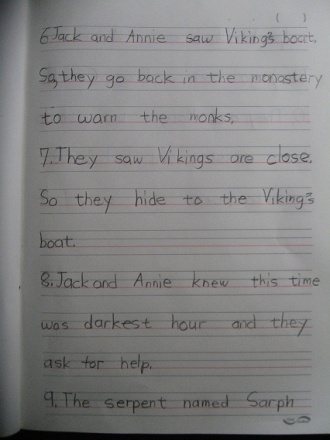 6 Jack and Annie saw Viking's boat.
So, they go back in the monastery
to warn the monks.
7. They saw Vikings are close.
So they hide to the Viking's
boat.
8. Jack and Annie knew this time
was darkest hour and they
ask for help.
9. The serpent named Sarph